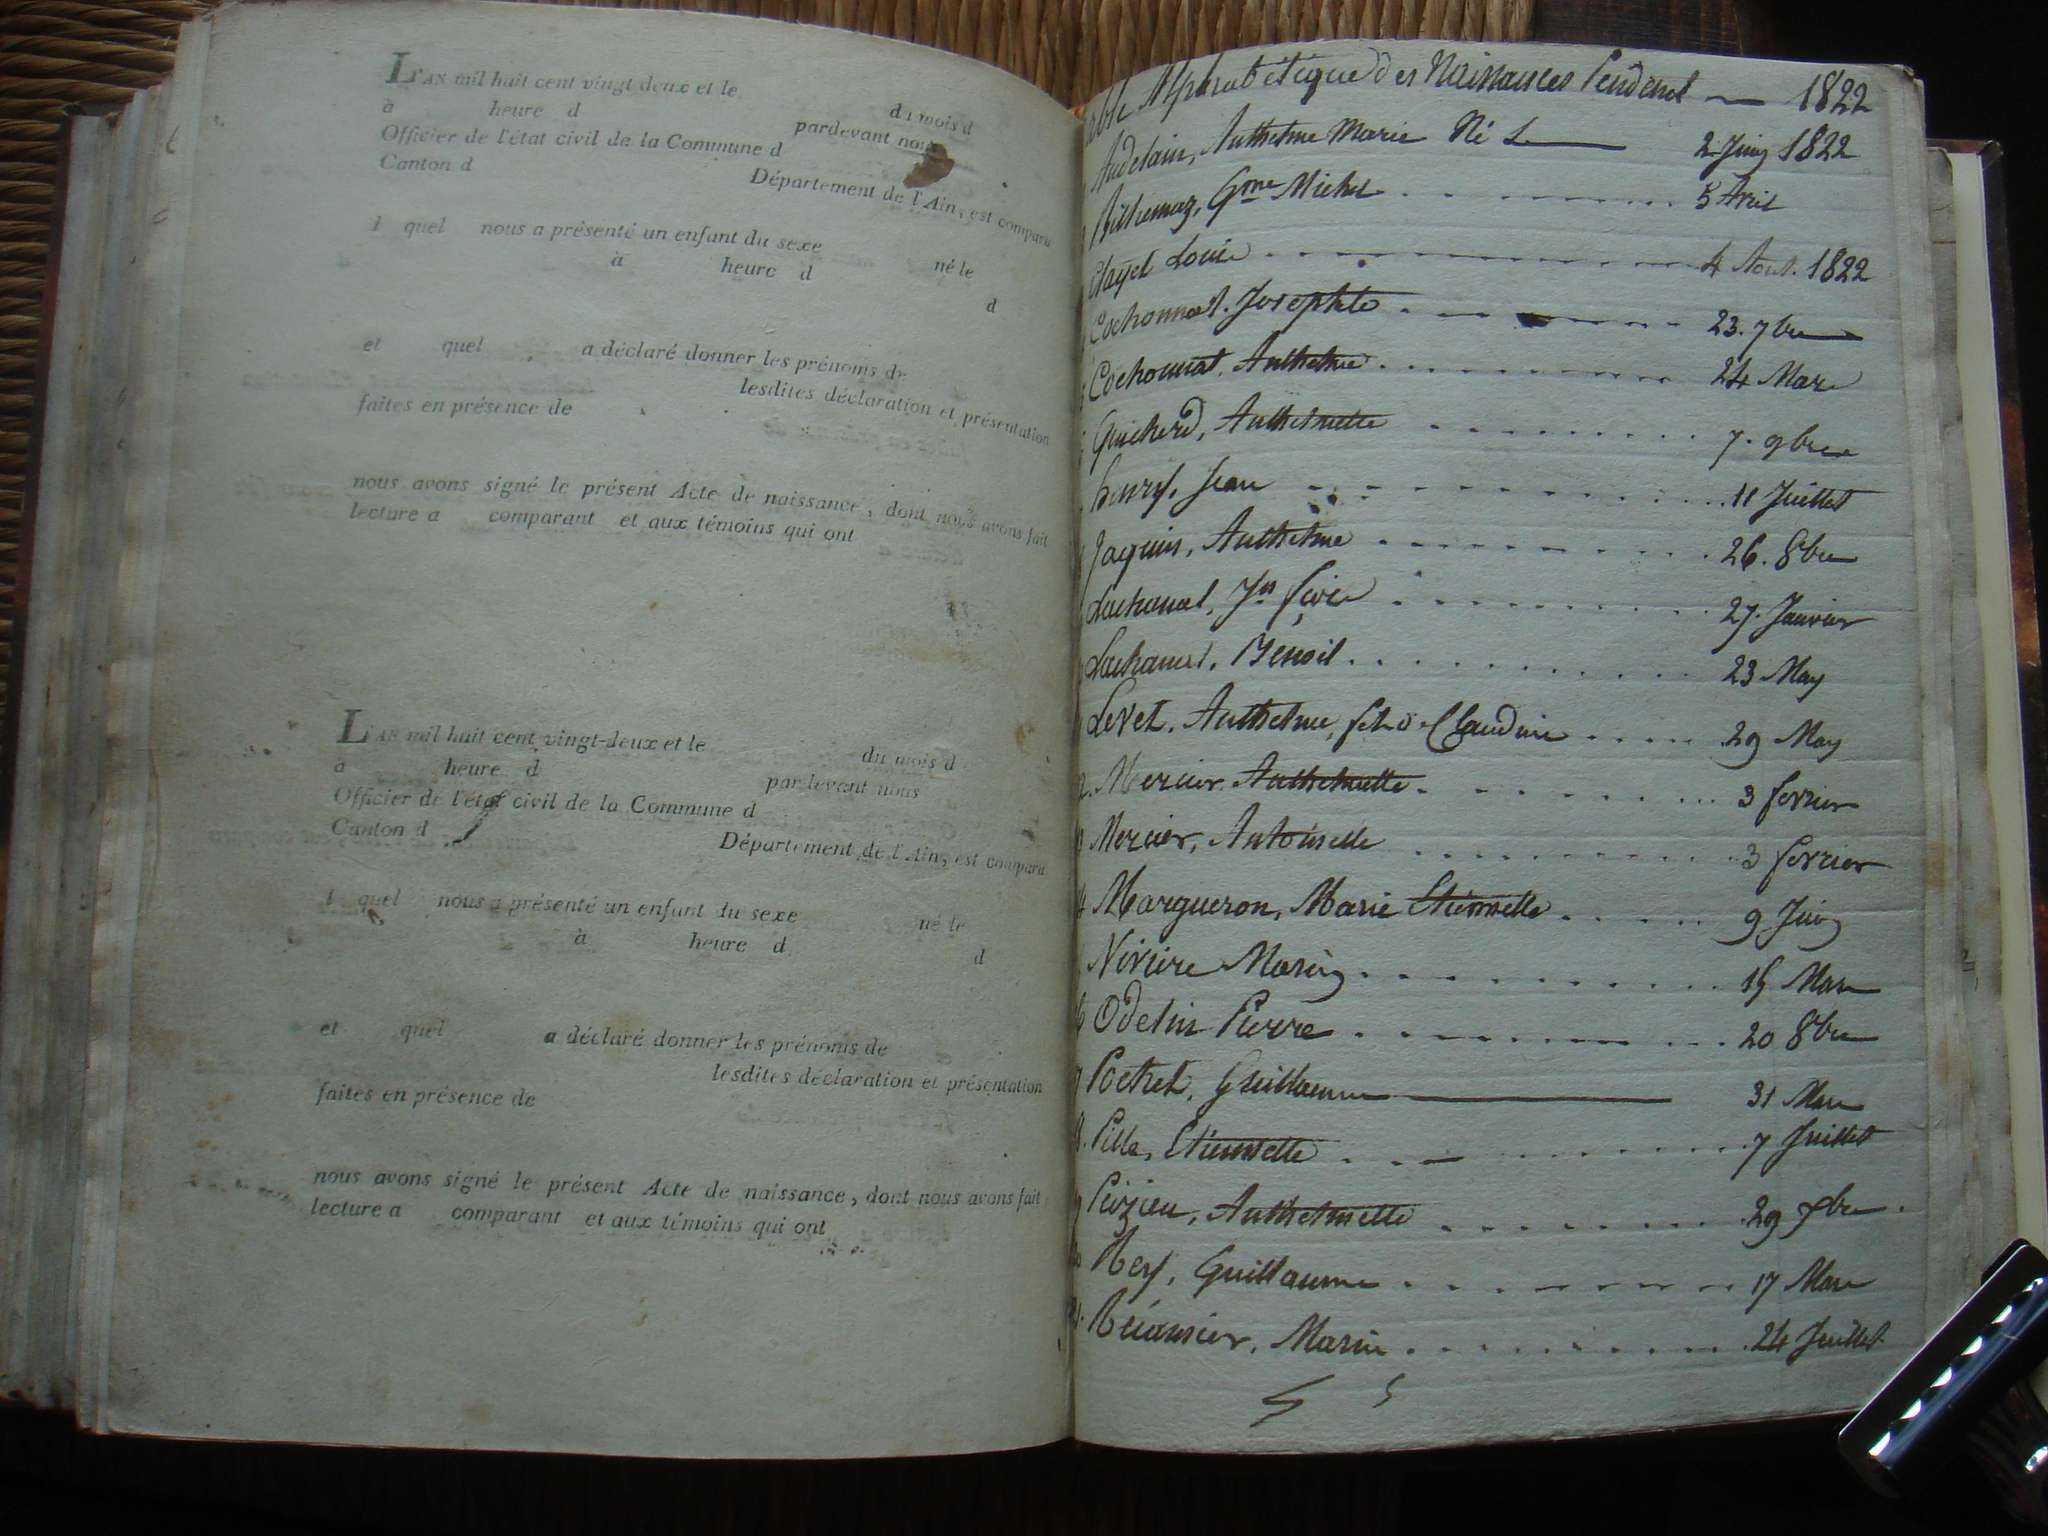 L'AN mil huit cent vingt deux et le
du mois d
à heure d
pardevant nous
Officier de l'état civil de la Commune d
Canton d
Département de l'Ain, est comparu
l quel nous a présenté un enfant du sexe
né le
à heure d
d
et quel a déclaré donner les prénoms de
lesdites déclaration et présentation
faites en présence de
nous avons signé le présent Acte de naissance, dont nous avons fait
lecture a comparant et aux témoins qui ont
L'AN mil huit cent vingt-deux et le
du mois d
à heure d
pardevant nous
Officier de l'état civil de la Commune d
Canton d
Département de l'Ain, est comparu
l quel nous a présenté un enfant du sexe
né le
à heure d
d
et quel a déclaré donner les prénoms de
lesdites déclaration et présentation
faites en présence de
nous avons signé le présent Acte de naissance, dont nous avons fait
lecture a comparant et aux témoins qui ont
Alphabétique des Naissances Pendent 1822
Audelain, Anthelme Marie Né L 2 Juin 1822
Bithemaz, Gme Michel 5 Avril
Clayet Louis 4 Aout. 1822
Cochonnat. Josephte 23. 7bre
Cochonnat, Anthelme 24 Mars
Guicherd, Anthelmette 7. 9bre
henry, Jean 11 Juillet
Jaquin, Anthelme 26. 8bre
Lachanal, 27. Janvier
Lachanal, Benoit 23 May
Levet, Anthelme, Claudine 29 May
12. Mercier Anthelmette 3 fevrier
Mercier, Antoinette 3 fevrier
Margueron, Marie Etiennette 9 Juin
Niviere Marin 15 Mars
Odelin Pierre 20 8bre
Pochet, Guillaume 31 Mars
Pille, Etiennette 7 Juillet
Peizieu, Anthelmette 29 7bre
Rey, Guillaume 17 Mars
Récamier, Marie 24 Juillet